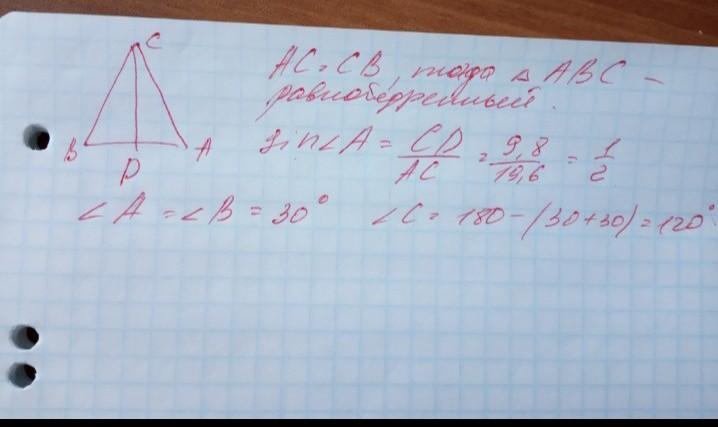 C
B
A
D
AC = CB, тогда △ ABC –
равнобедренный.
sin∠A = CD/AC = 9,8/19,6 = 1/2
∠A = ∠B = 30° ∠C = 180 – (30+30) = 120°